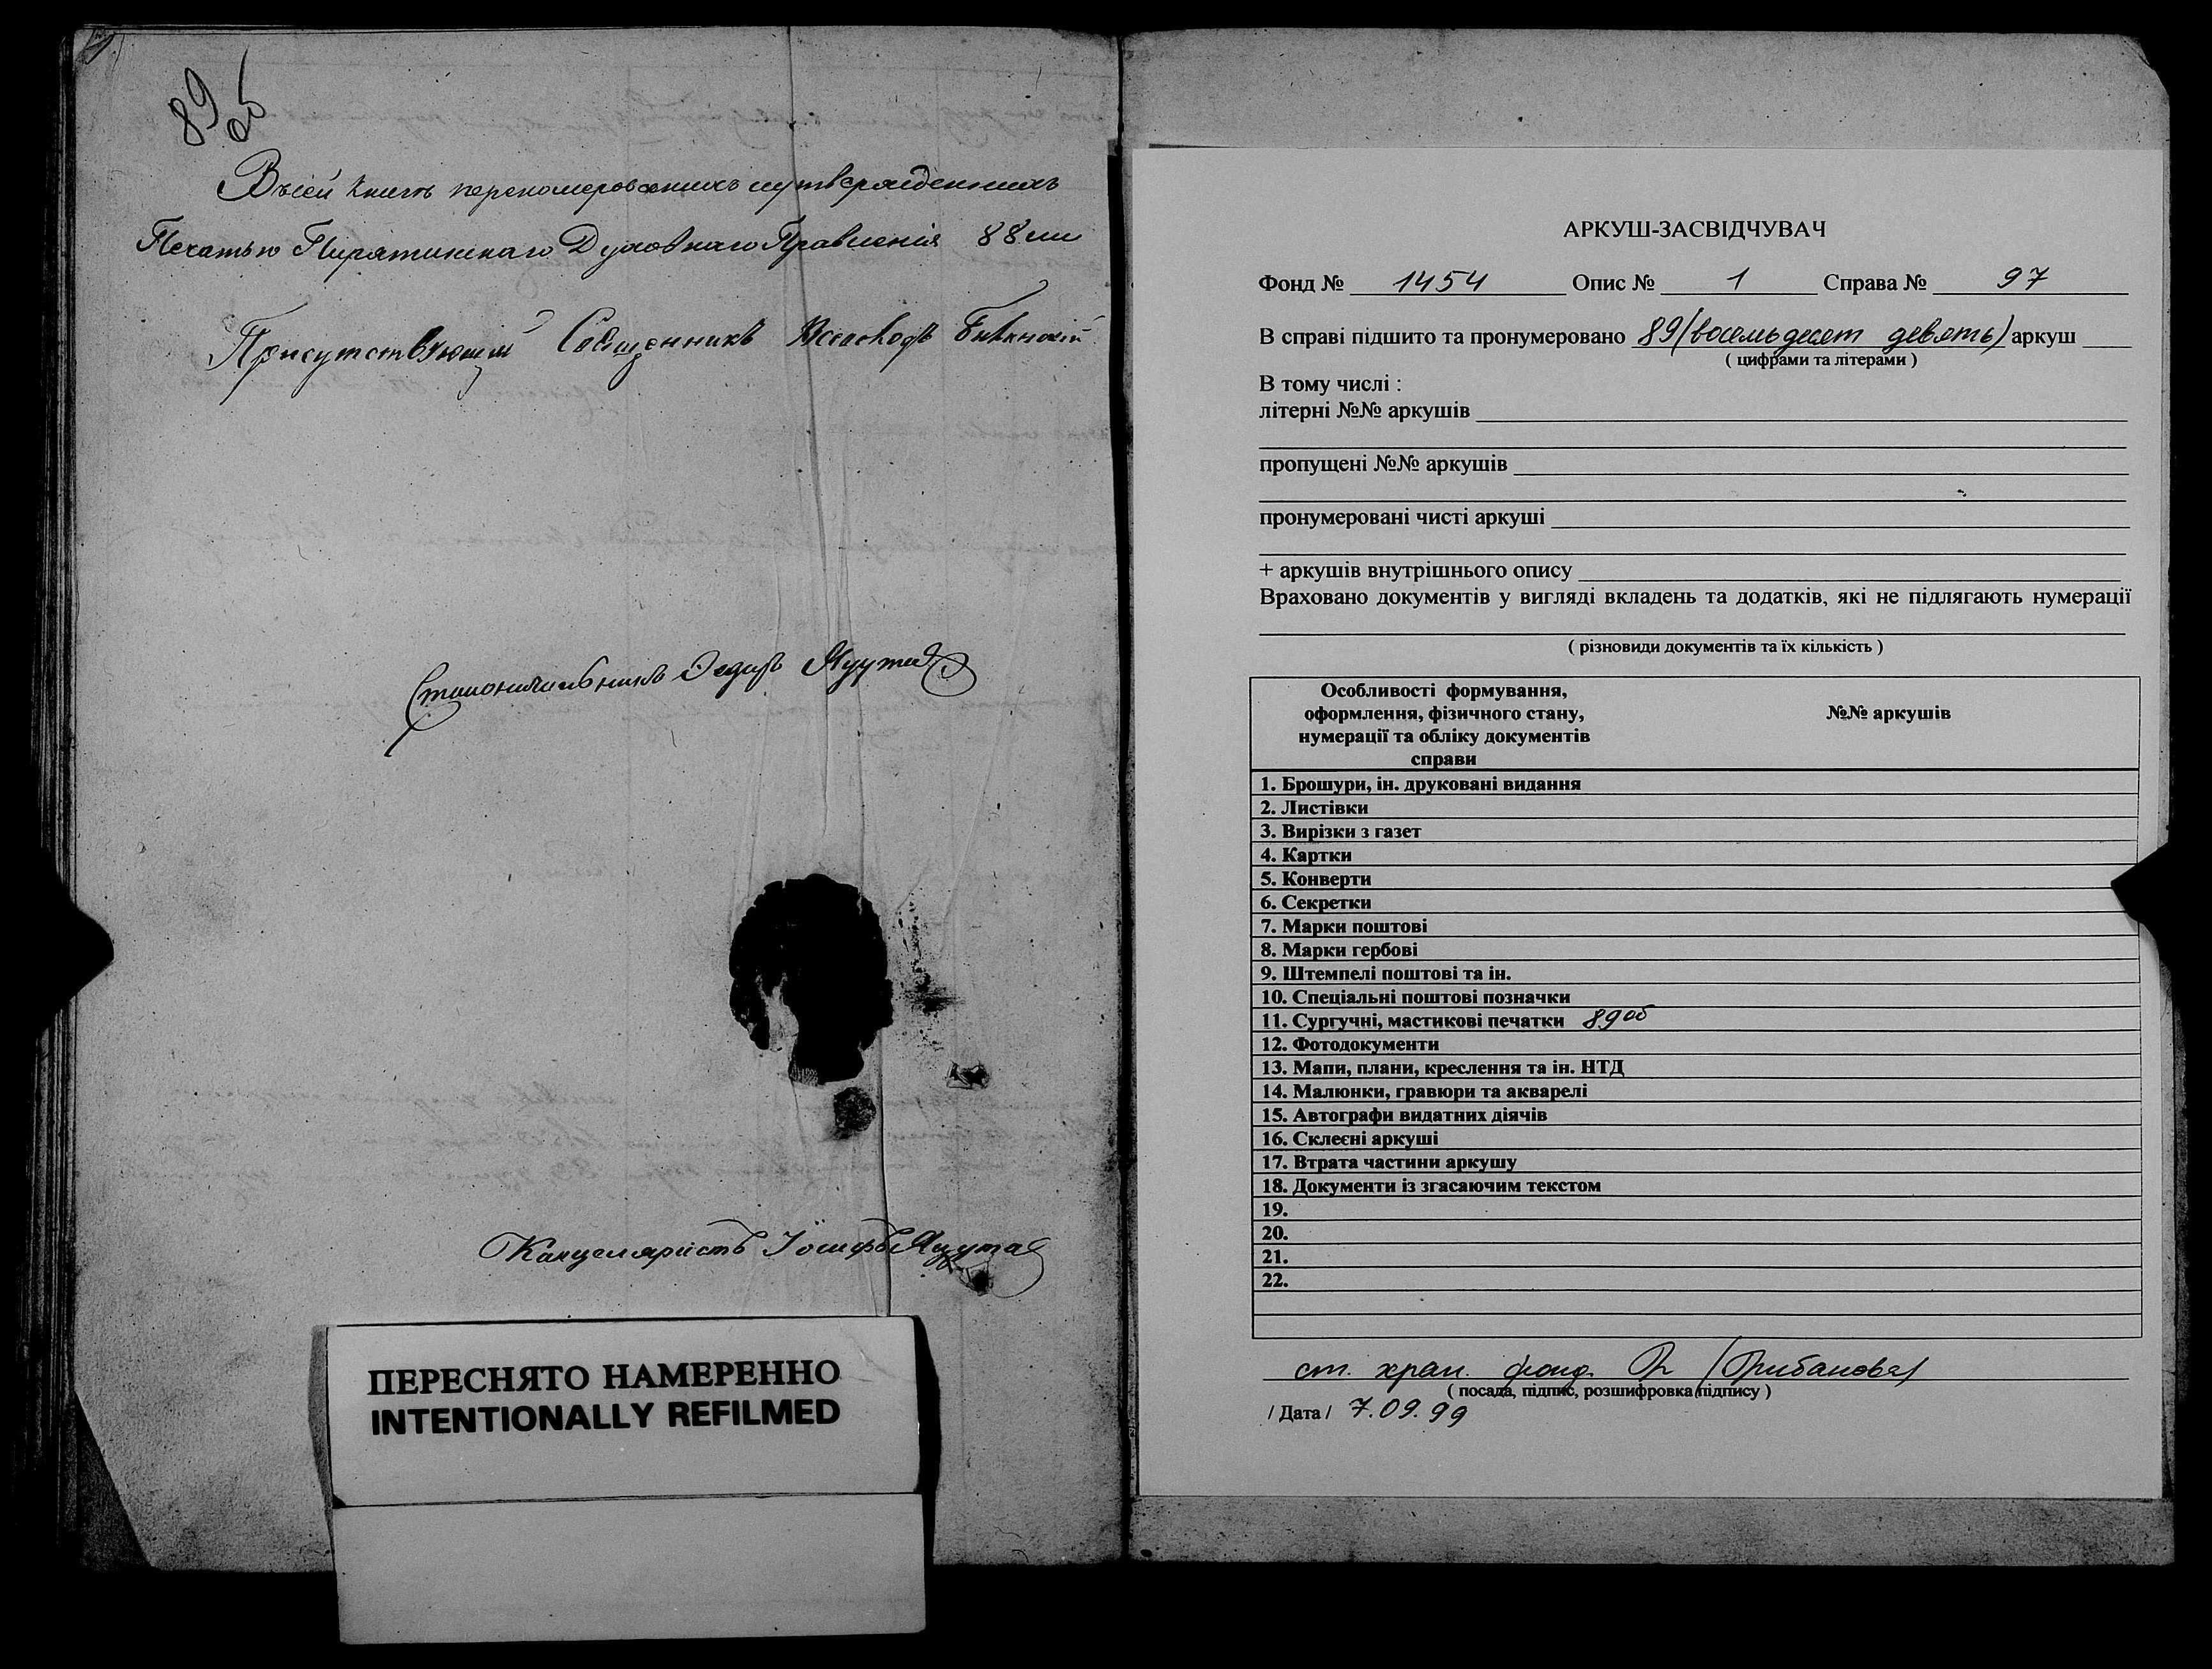 89
об
Въ сей книгѣ переномерованныхъ и утвержденныхъ
Печатью Пирятинскаго Духовнаго Правленія 88 ли
Присутствующій Священникъ
Столоначальникъ Федоръ Яцута
Канцеляристъ Іосифъ Яцута
ПЕРЕСНЯТО НАМЕРЕННО
INTENTIONALLY REFILMED
АРКУШ-ЗАСВІДЧУВАЧ
Фонд № 1454 Опис № 1 Справа № 97
В справі підшито та пронумеровано 89 (восемьдесят девять) аркуш
( цифрами та літерами )
В тому числі :
літерні №№ аркушів
пропущені №№ аркушів
пронумеровані чисті аркуші
+ аркушів внутрішнього опису
Враховано документів у вигляді вкладень та додатків, які не підлягають нумерації
( різновиди документів та їх кількість )
Особливості формування,
оформлення, фізичного стану,
нумерації та обліку документів
справи
№№ аркушів
1. Брошури, ін. друковані видання
2. Листівки
3. Вирізки з газет
4. Картки
5. Конверти
6. Секретки
7. Марки поштові
8. Марки гербові
9. Штемпелі поштові та ін.
10. Спеціальні поштові позначки
11. Сургучні, мастикові печатки 89об
12. Фотодокументи
13. Мапи, плани, креслення та ін. НТД
14. Малюнки, гравюри та акварелі
15. Автографи видатних діячів
16. Склеєні аркуші
17. Втрата частини аркушу
18. Документи із згасаючим текстом
19.
20.
21.
22.
ст. хран. фонд.
( посада, підпис, розшифровка підпису )
/ Дата / 7.09.99